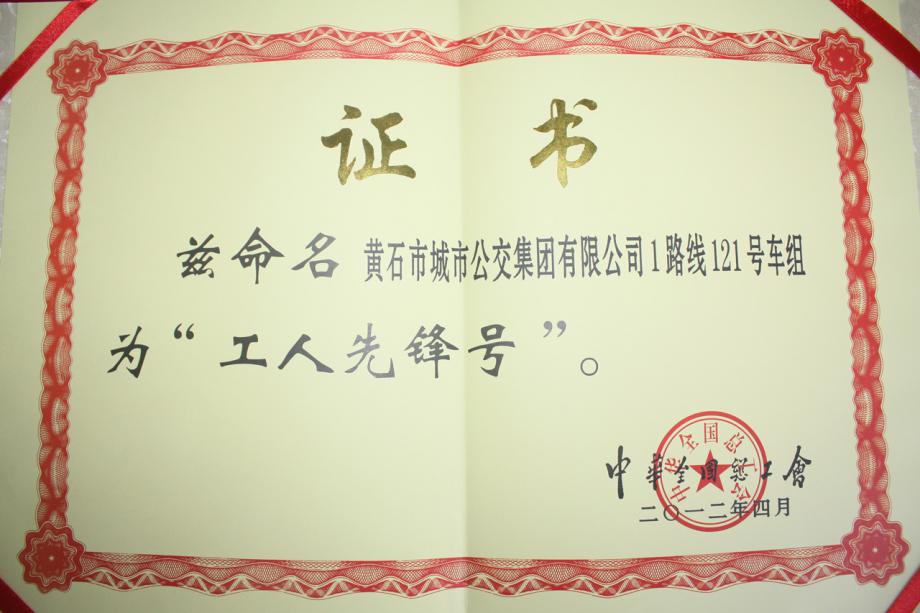 证书
兹命名 黄石市城市公交集团有限公司1路线121号车组
为“工人先锋号”。
中华全国总工会
中華全國總工會
二〇一二年四月